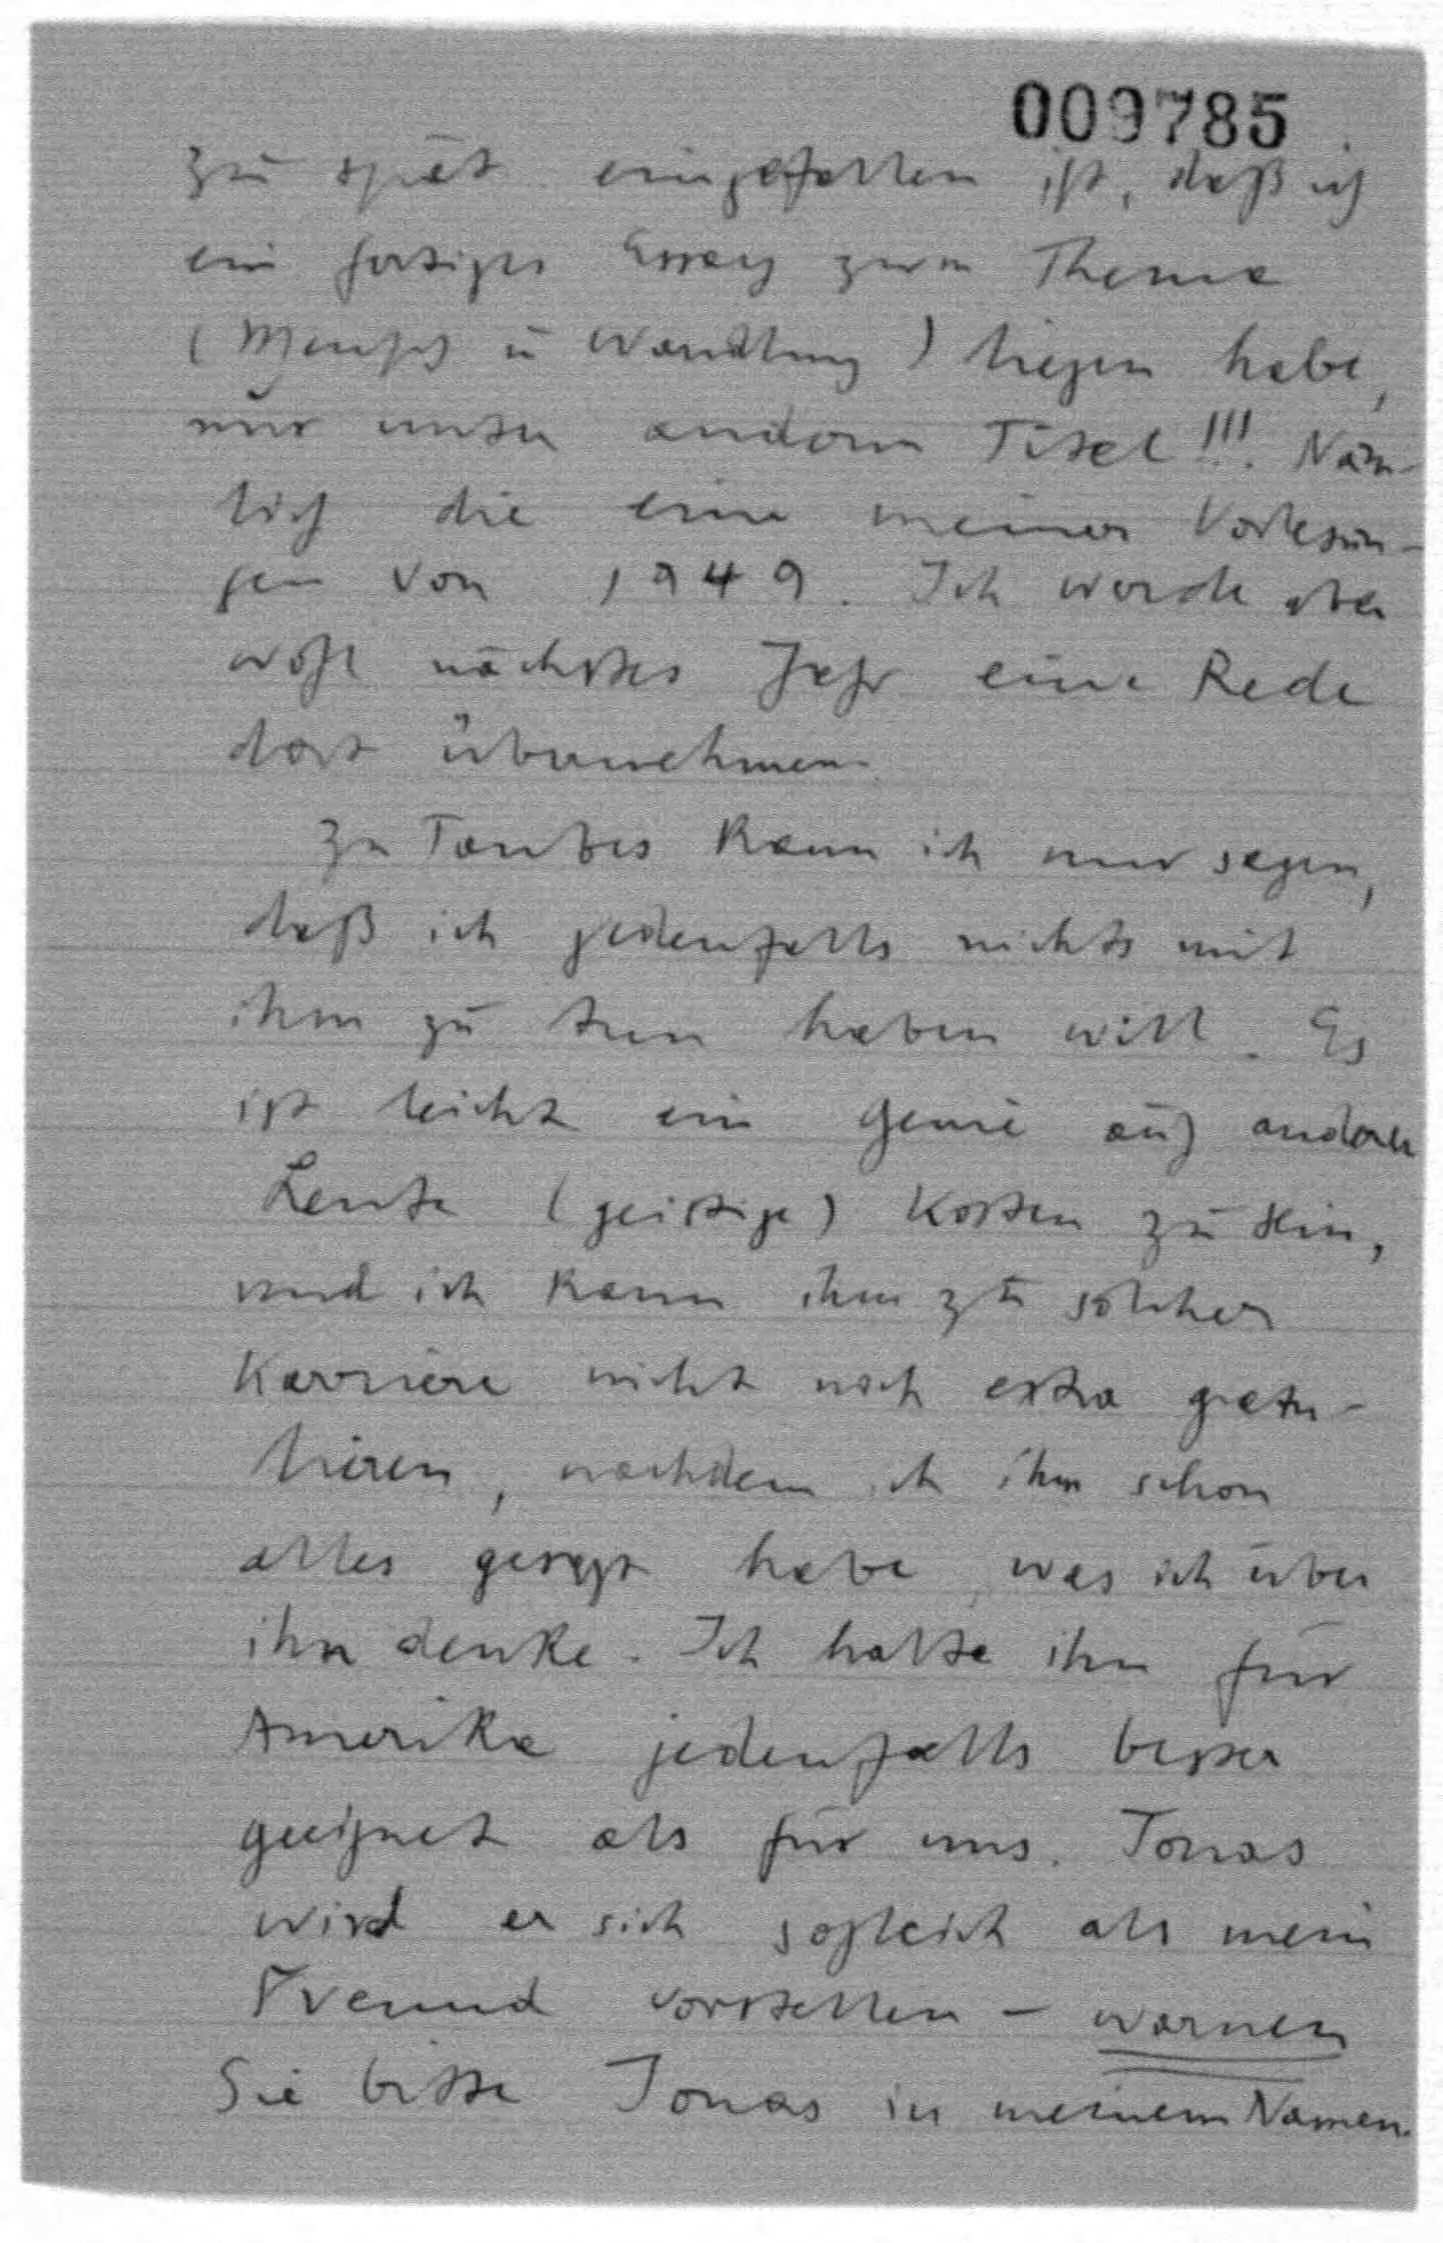 009785
zu spät eingefallen ist, daß ich
ein fertiges Essay zum Thema
(Mensch u Wandlung) liegen habe,
nur unter anderm Titel!!! Näm-
lich die eine meiner Vorlesun-
gen von 1949. Ich werde aber
wohl nächstes Jahr eine Rede
dort übernehmen.
Zu Taubes kann ich nur sagen,
daß ich jedenfalls nichts mit
ihm zu tun haben will. Es
ist leicht ein Genie auf anderer
Leute (geistige) Kosten zu sein,
und ich kann ihm zu solcher
Karriere nicht noch extra gratu-
lieren, nachdem ich ihm schon
alles gesagt habe, was ich über
ihn denke. Ich halte ihn für
Amerika jedenfalls besser
geeignet als für uns. Jonas
wird er sich sogleich als mein
Freund vorstellen – warnen
Sie bitte Jonas in meinem Namen.